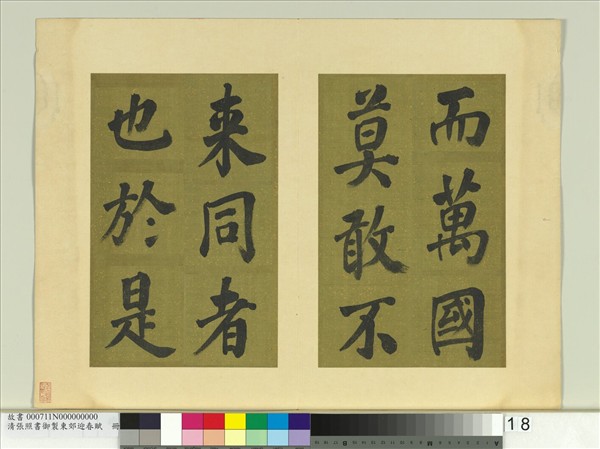 而萬國
莫敢不
来同者
也於是
故書 000711N000000000
清張照書御製東郊迎春賦 冊
18